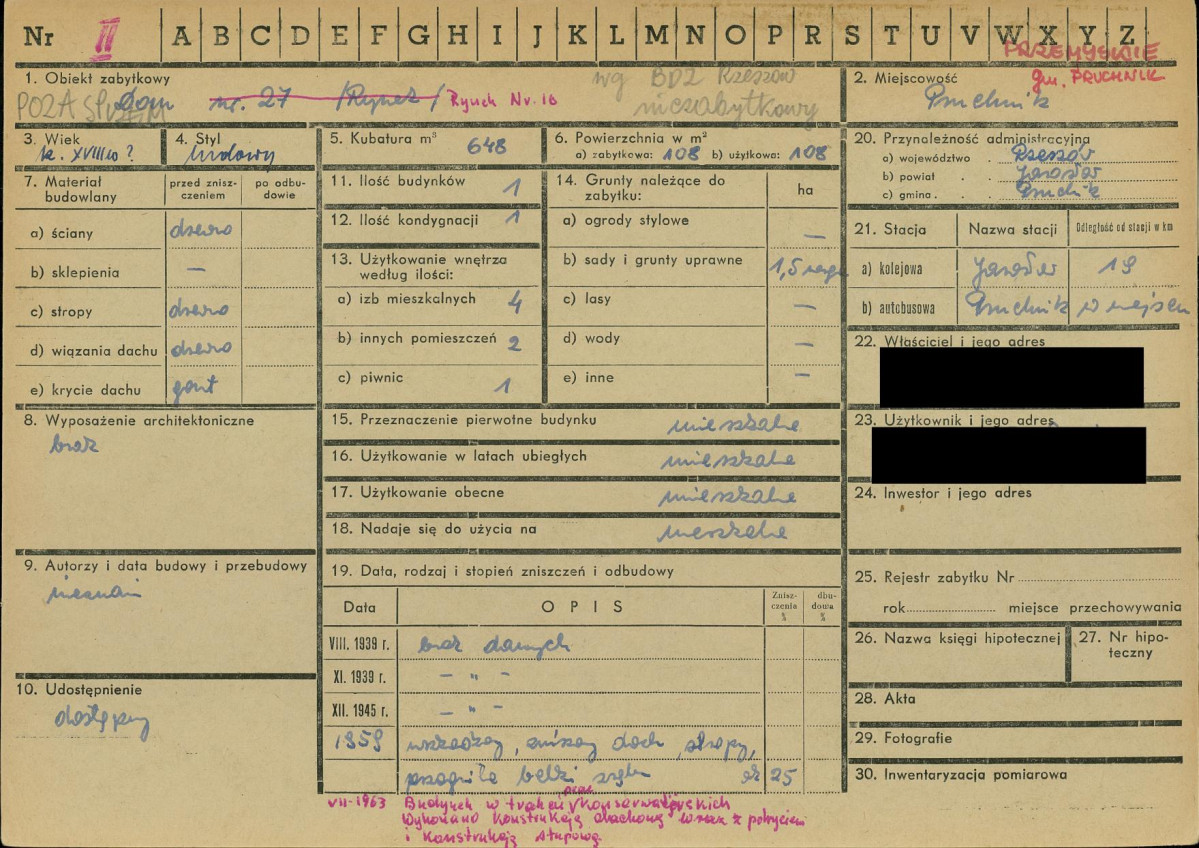 Nr II A B C D E F G H I J K L M N O P R S T U V W X Y Z
PRZEMYSKIE
gm. PRUCHNIK
1. Obiekt zabytkowy
wg BDZ Rzeszów
niezabytkowy
POZA SPISEM
Dom nr. 27 /Rynek/ Rynek Nr. 16
2. Miejscowość
Pruchnik
3. Wiek
k. XVIII w?
4. Styl
ludowy
5. Kubatura m³ 648
6. Powierzchnia w m²
a) zabytkowa: 108 b) użytkowa: 108
7. Materiał budowlany
przed zniszczeniem
po odbudowie
a) ściany drewno
b) sklepienia —
c) stropy drewno
d) wiązania dachu drewno
e) krycie dachu gont
8. Wyposażenie architektoniczne
brak
9. Autorzy i data budowy i przebudowy
nieznani
10. Udostępnienie
dostępny
11. Ilość budynków 1
12. Ilość kondygnacji 1
13. Użytkowanie wnętrza
według ilości:
a) izb mieszkalnych 4
b) innych pomieszczeń 2
c) piwnic 1
14. Grunty należące do
zabytku:
ha
a) ogrody stylowe —
b) sady i grunty uprawne 1,5
c) lasy —
d) wody —
e) inne —
15. Przeznaczenie pierwotne budynku mieszkalne
16. Użytkowanie w latach ubiegłych mieszkalne
17. Użytkowanie obecne mieszkalne
18. Nadaje się do użycia na mieszkalne
19. Data, rodzaj i stopień zniszczeń i odbudowy
Data OPIS Zniszczenia % dbudowa %
VIII. 1939 r. brak danych
XI. 1939 r. — " —
XII. 1945 r. — " —
1959 wszczący, zniszcz dach, stropy,
przegniłe belki zrębu ok 25
VII-1963 Budynek w trakcie prac konserwatorskich
Wykonano konstrukcję dachową wraz z pokryciem
i konstrukcją słupową.
20. Przynależność administracyjna
a) województwo Rzeszów
b) powiat Jarosław
c) gmina Pruchnik
21. Stacja Nazwa stacji Odległość od stacji w km
a) kolejowa Jarosław 19
b) autobusowa Pruchnik w miejscu
22. Właściciel i jego adres
23. Użytkownik i jego adres
24. Inwestor i jego adres
25. Rejestr zabytku Nr
rok miejsce przechowywania
26. Nazwa księgi hipotecznej
27. Nr hipoteczny
28. Akta
29. Fotografie
30. Inwentaryzacja pomiarowa